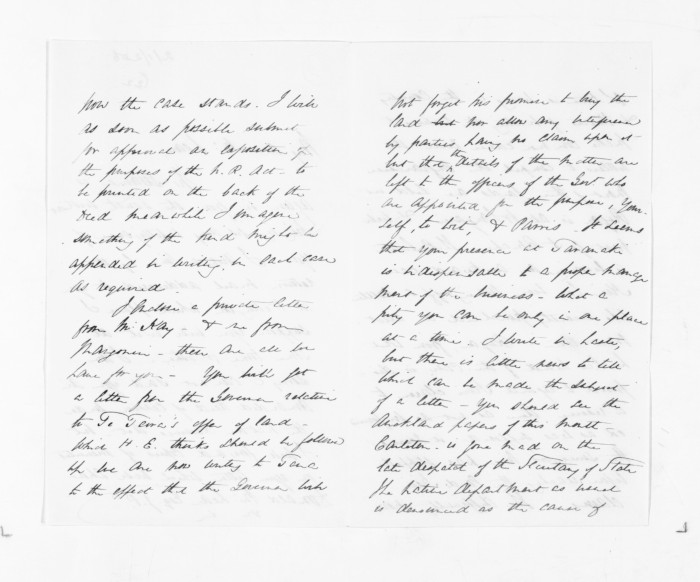 how the case stands. I will
as soon as possible submit
for approval an exposition of
the purposes of the N. R. Act - to
be printed on the back of the
deed meanwhile I imagine
something of the kind might be
appended in writing in each case
as required.
I enclose a private letter
from Mr Kay - & one from
- these are all we
have for you - You will get
a letter from the Governor relative
to Te Teira's offer of land -
which H. E. thinks should be followed
up we are now writing to Teira
to the effect that the Governor will
not forget his promise to buy the
land but nor allow any interference
by parties having no claim upon it
but that the details of the matter are
left to the officers of the Govt who
are appointed for the purpose, your-
self, to wit, & Parris. It seems
that your presence at Taranaki
is indispensable to a proper manage
ment of the business - What a
pity you can be only in one place
at a time - I write in haste,
but there is little news to tell
which can be made the subject
of a letter - you should see the
Auckland papers of this month -
is gone mad on the
late despatch of the Secretary of State
the Native department as usual
is denounced as the cause of